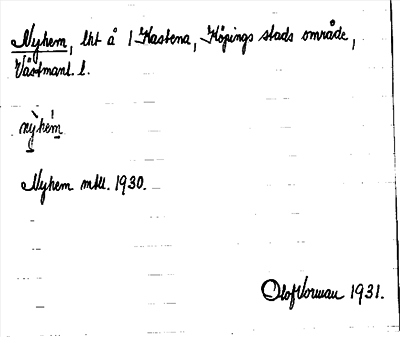 Nyhem, lht å 1 Kastena, Köpings stads område,
Västmanl. l.
nýhèm
Nyhem mtl. 1930.
Olof Vorman 1931.